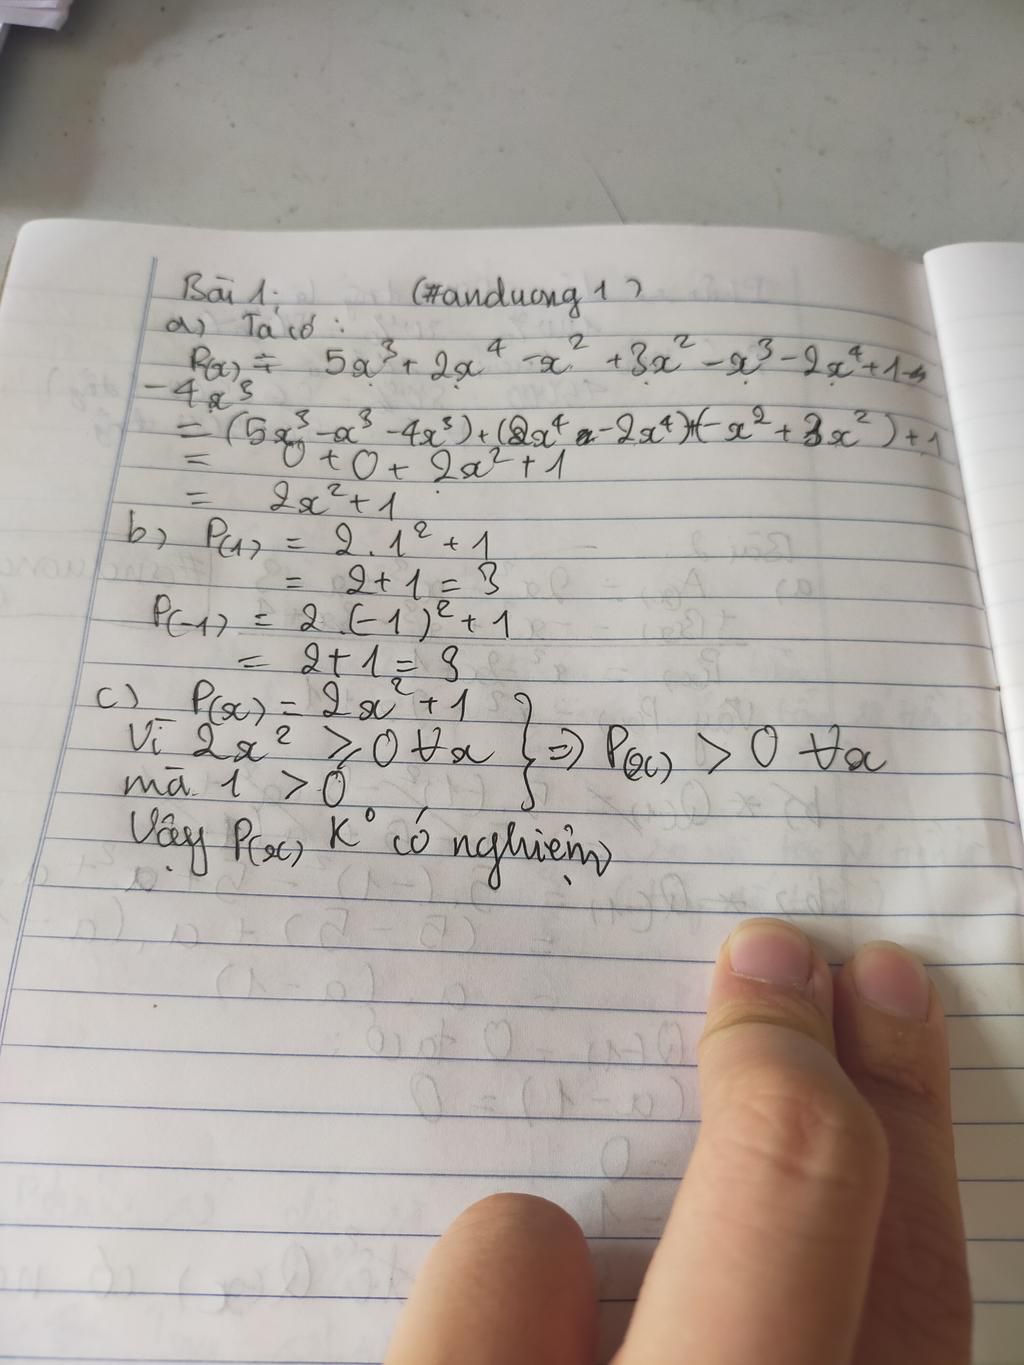 Bài 1: (#anduong1)
a) Ta có:
P(x) = 5x³ + 2x⁴ - x² + 3x² - x³ - 2x⁴ + 1 -
- 4x³
= (5x³ - x³ - 4x³) + (2x⁴ - 2x⁴) + (-x² + 3x²) + 1
= 0 + 0 + 2x² + 1
= 2x² + 1
b) P(1) = 2.1² + 1
= 2 + 1 = 3
P(-1) = 2.(-1)² + 1
= 2 + 1 = 3
c) P(x) = 2x² + 1
Vì 2x² ≥ 0 ∀x } => P(x) > 0 ∀x
mà 1 > 0
Vậy P(x) K° có nghiệm